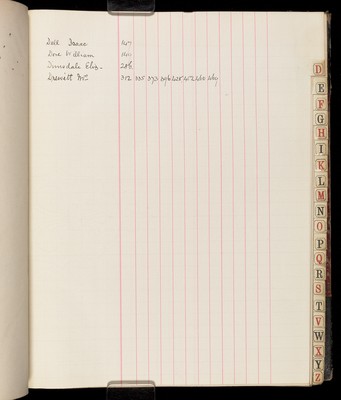 Dell Isaac 147
Dore William
Dimsdale Eliz. 286
Drewitt Mrs 312 335 373 396 428 452 460 469
D
E
F
G
H
I
K
L
M
N
O
P
Q
R
S
T
V
W
X
Y
Z